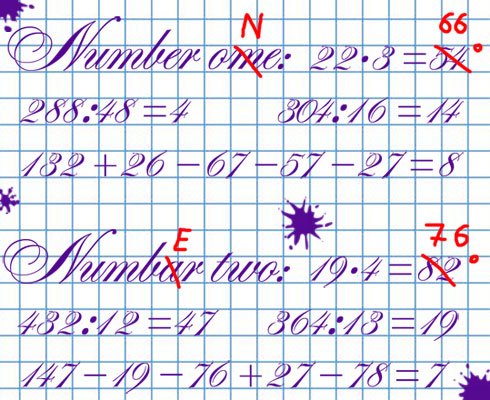 N 66°
Number ome: 22·3 =54
288:48 =4 304:16 =14
132 + 26 – 67 – 57 – 27 = 8
E 76°
Numbar two: 19·4 =82
432:12 =47 364:13 =19
147 – 19 – 76 + 27 – 78 = 7